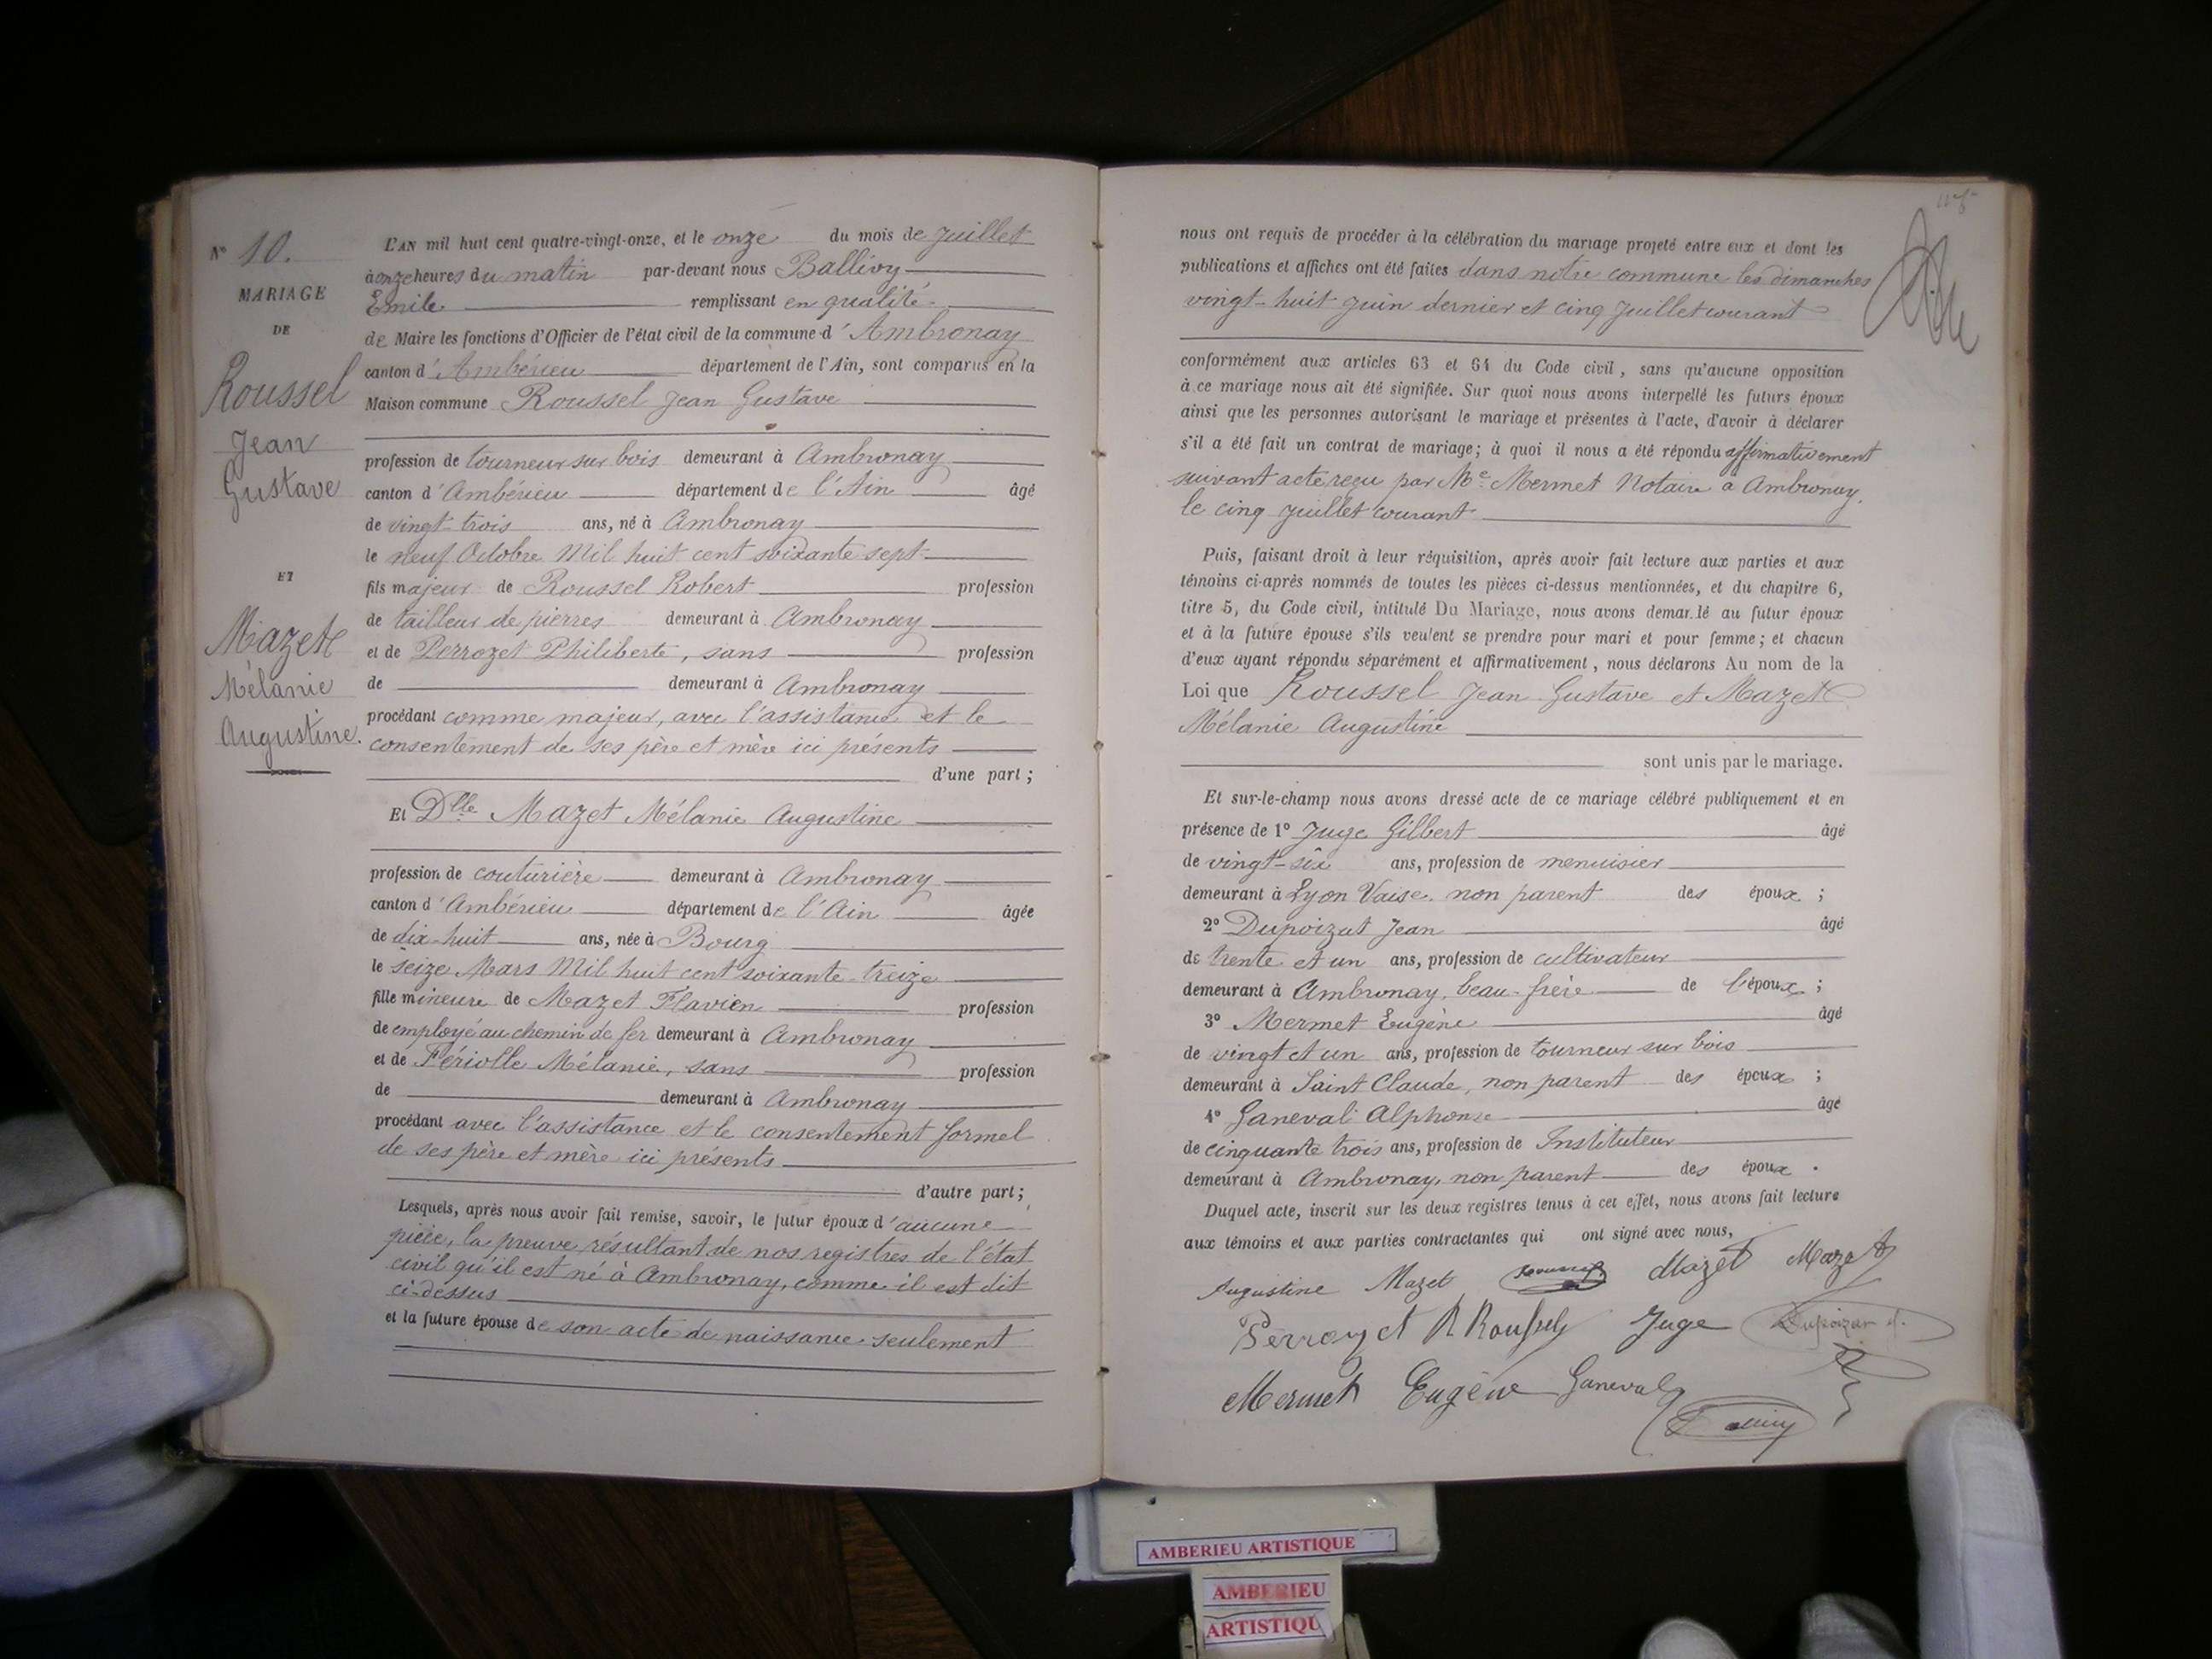 N° 10.
MARIAGE
DE
Roussel
Jean
Gustave
ET
Mazet
Mélanie
Augustine.
L'AN mil huit cent quatre-vingt-onze, et le onze du mois de Juillet
à onze heures du matin par-devant nous Ballivy
Emile remplissant en qualité
de Maire les fonctions d'Officier de l'état civil de la commune d'Ambronay
canton d'Ambérieu département de l'Ain, sont comparus en la
Maison commune Roussel Jean Gustave
profession de tourneur sur bois demeurant à Ambronay
canton d'Ambérieu département de l'Ain âgé
de vingt-trois ans, né à Ambronay
le neuf Octobre Mil huit cent soixante sept
fils majeur de Roussel Robert profession
de tailleur de pierres demeurant à Ambronay
et de Perrozet Philiberte, sans profession
de demeurant à Ambronay
procédant comme majeur, avec l'assistance et le
consentement de ses père et mère ici présents
d'une part ;
Et Dlle Mazet Mélanie Augustine
profession de couturière demeurant à Ambronay
canton d'Ambérieu département de l'Ain âgée
de dix-huit ans, née à Bourg
le seize Mars Mil huit cent soixante-treize
fille mineure de Mazet Flavien profession
de employé au chemin de fer demeurant à Ambronay
et de Fériolle Mélanie, sans profession
de demeurant à Ambronay
procédant avec l'assistance et le consentement formel
de ses père et mère ici présents
d'autre part ;
Lesquels, après nous avoir fait remise, savoir, le futur époux d'aucune
pièce, la preuve résultant de nos registres de l'état
civil qu'il est né à Ambronay, comme il est dit
ci-dessus
et la future épouse de son acte de naissance seulement
nous ont requis de procéder à la célébration du mariage projeté entre eux et dont les
publications et affiches ont été faites dans notre commune les dimanches
vingt-huit Juin dernier et cinq Juillet courant
conformément aux articles 63 et 64 du Code civil, sans qu'aucune opposition
à ce mariage nous ait été signifiée. Sur quoi nous avons interpellé les futurs époux
ainsi que les personnes autorisant le mariage et présentes à l'acte, d'avoir à déclarer
s'il a été fait un contrat de mariage ; à quoi il nous a été répondu affirmativement
suivant acte reçu par Me Mermet Notaire à Ambronay,
le cinq Juillet courant
Puis, faisant droit à leur réquisition, après avoir fait lecture aux parties et aux
témoins ci-après nommés de toutes les pièces ci-dessus mentionnées, et du chapitre 6,
titre 5, du Code civil, intitulé Du Mariage, nous avons demandé au futur époux
et à la future épouse s'ils veulent se prendre pour mari et pour femme ; et chacun
d'eux ayant répondu séparément et affirmativement, nous déclarons Au nom de la
Loi que Roussel Jean Gustave et Mazet
Mélanie Augustine
sont unis par le mariage.
Et sur-le-champ nous avons dressé acte de ce mariage célébré publiquement et en
présence de 1° Juge Gilbert âgé
de vingt-six ans, profession de menuisier
demeurant à Lyon Vaise, non parent des époux ;
2° Dupoizat Jean âgé
de trente et un ans, profession de cultivateur
demeurant à Ambronay, beau-frère de l'époux ;
3° Mermet Eugène âgé
de vingt et un ans, profession de tourneur sur bois
demeurant à Saint Claude, non parent des époux ;
4° Ganeval Alphonse âgé
de cinquante trois ans, profession de Instituteur
demeurant à Ambronay, non parent des époux.
Duquel acte, inscrit sur les deux registres tenus à cet effet, nous avons fait lecture
aux témoins et aux parties contractantes qui ont signé avec nous,
Augustine Mazet Mazet Mazet
Perrozet R Roussel Juge
Mermet Eugène Ganeval
AMBERIEU ARTISTIQUE
AMBERIEU
ARTISTIQU